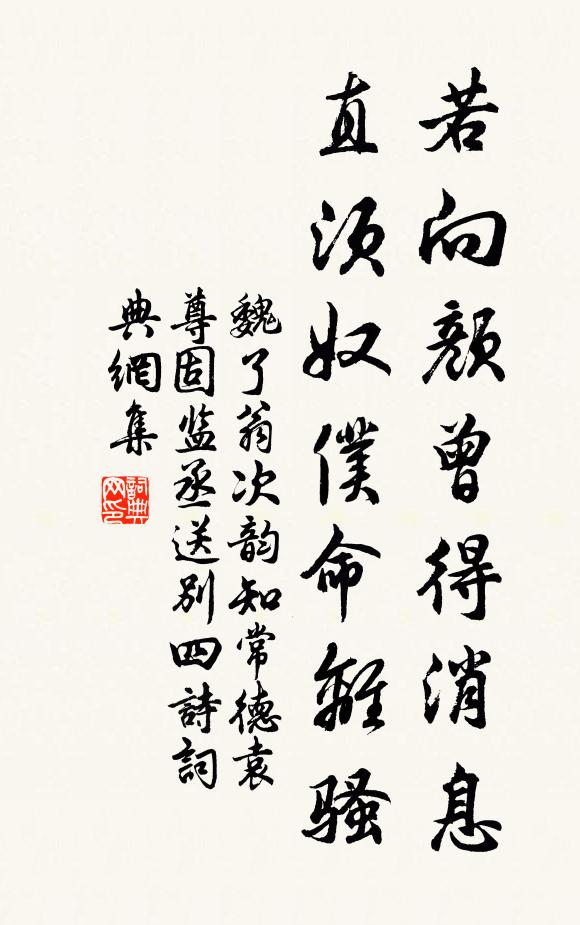 若向顏曾得消息
直須奴僕命離騷
魏了翁次韵知常德袁
尊固监丞送别四詩詞
典網集
詞典网印